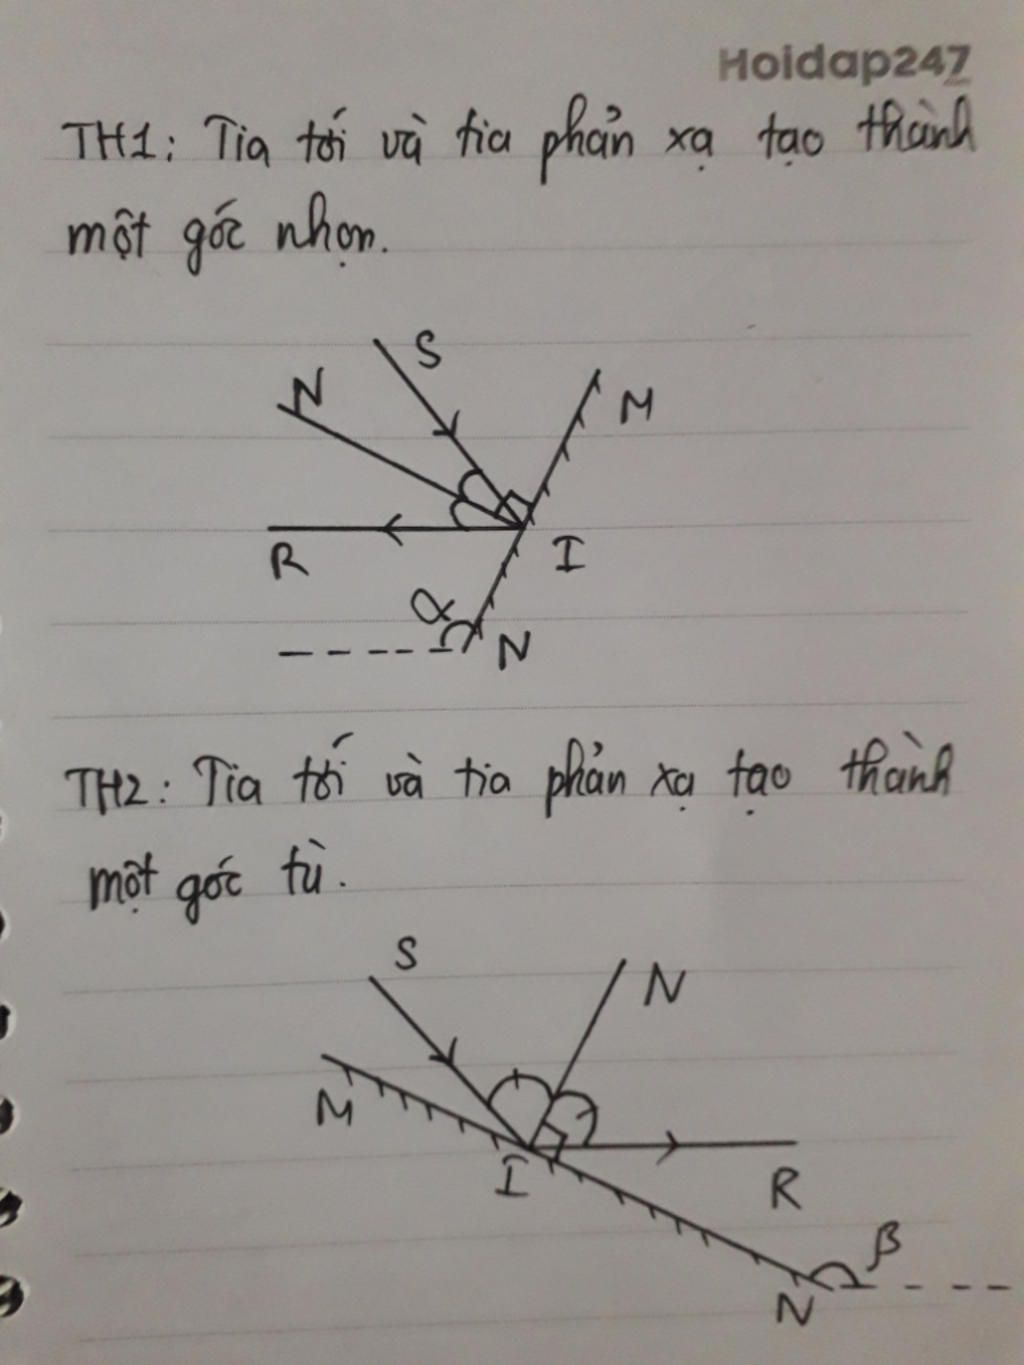 Hoidap247
TH1: Tia tới và tia phản xạ tạo thành
một góc nhọn.
S
N
M
R
I
α
N
TH2: Tia tới và tia phản xạ tạo thành
một góc tù.
S
N
M
I
R
β
N